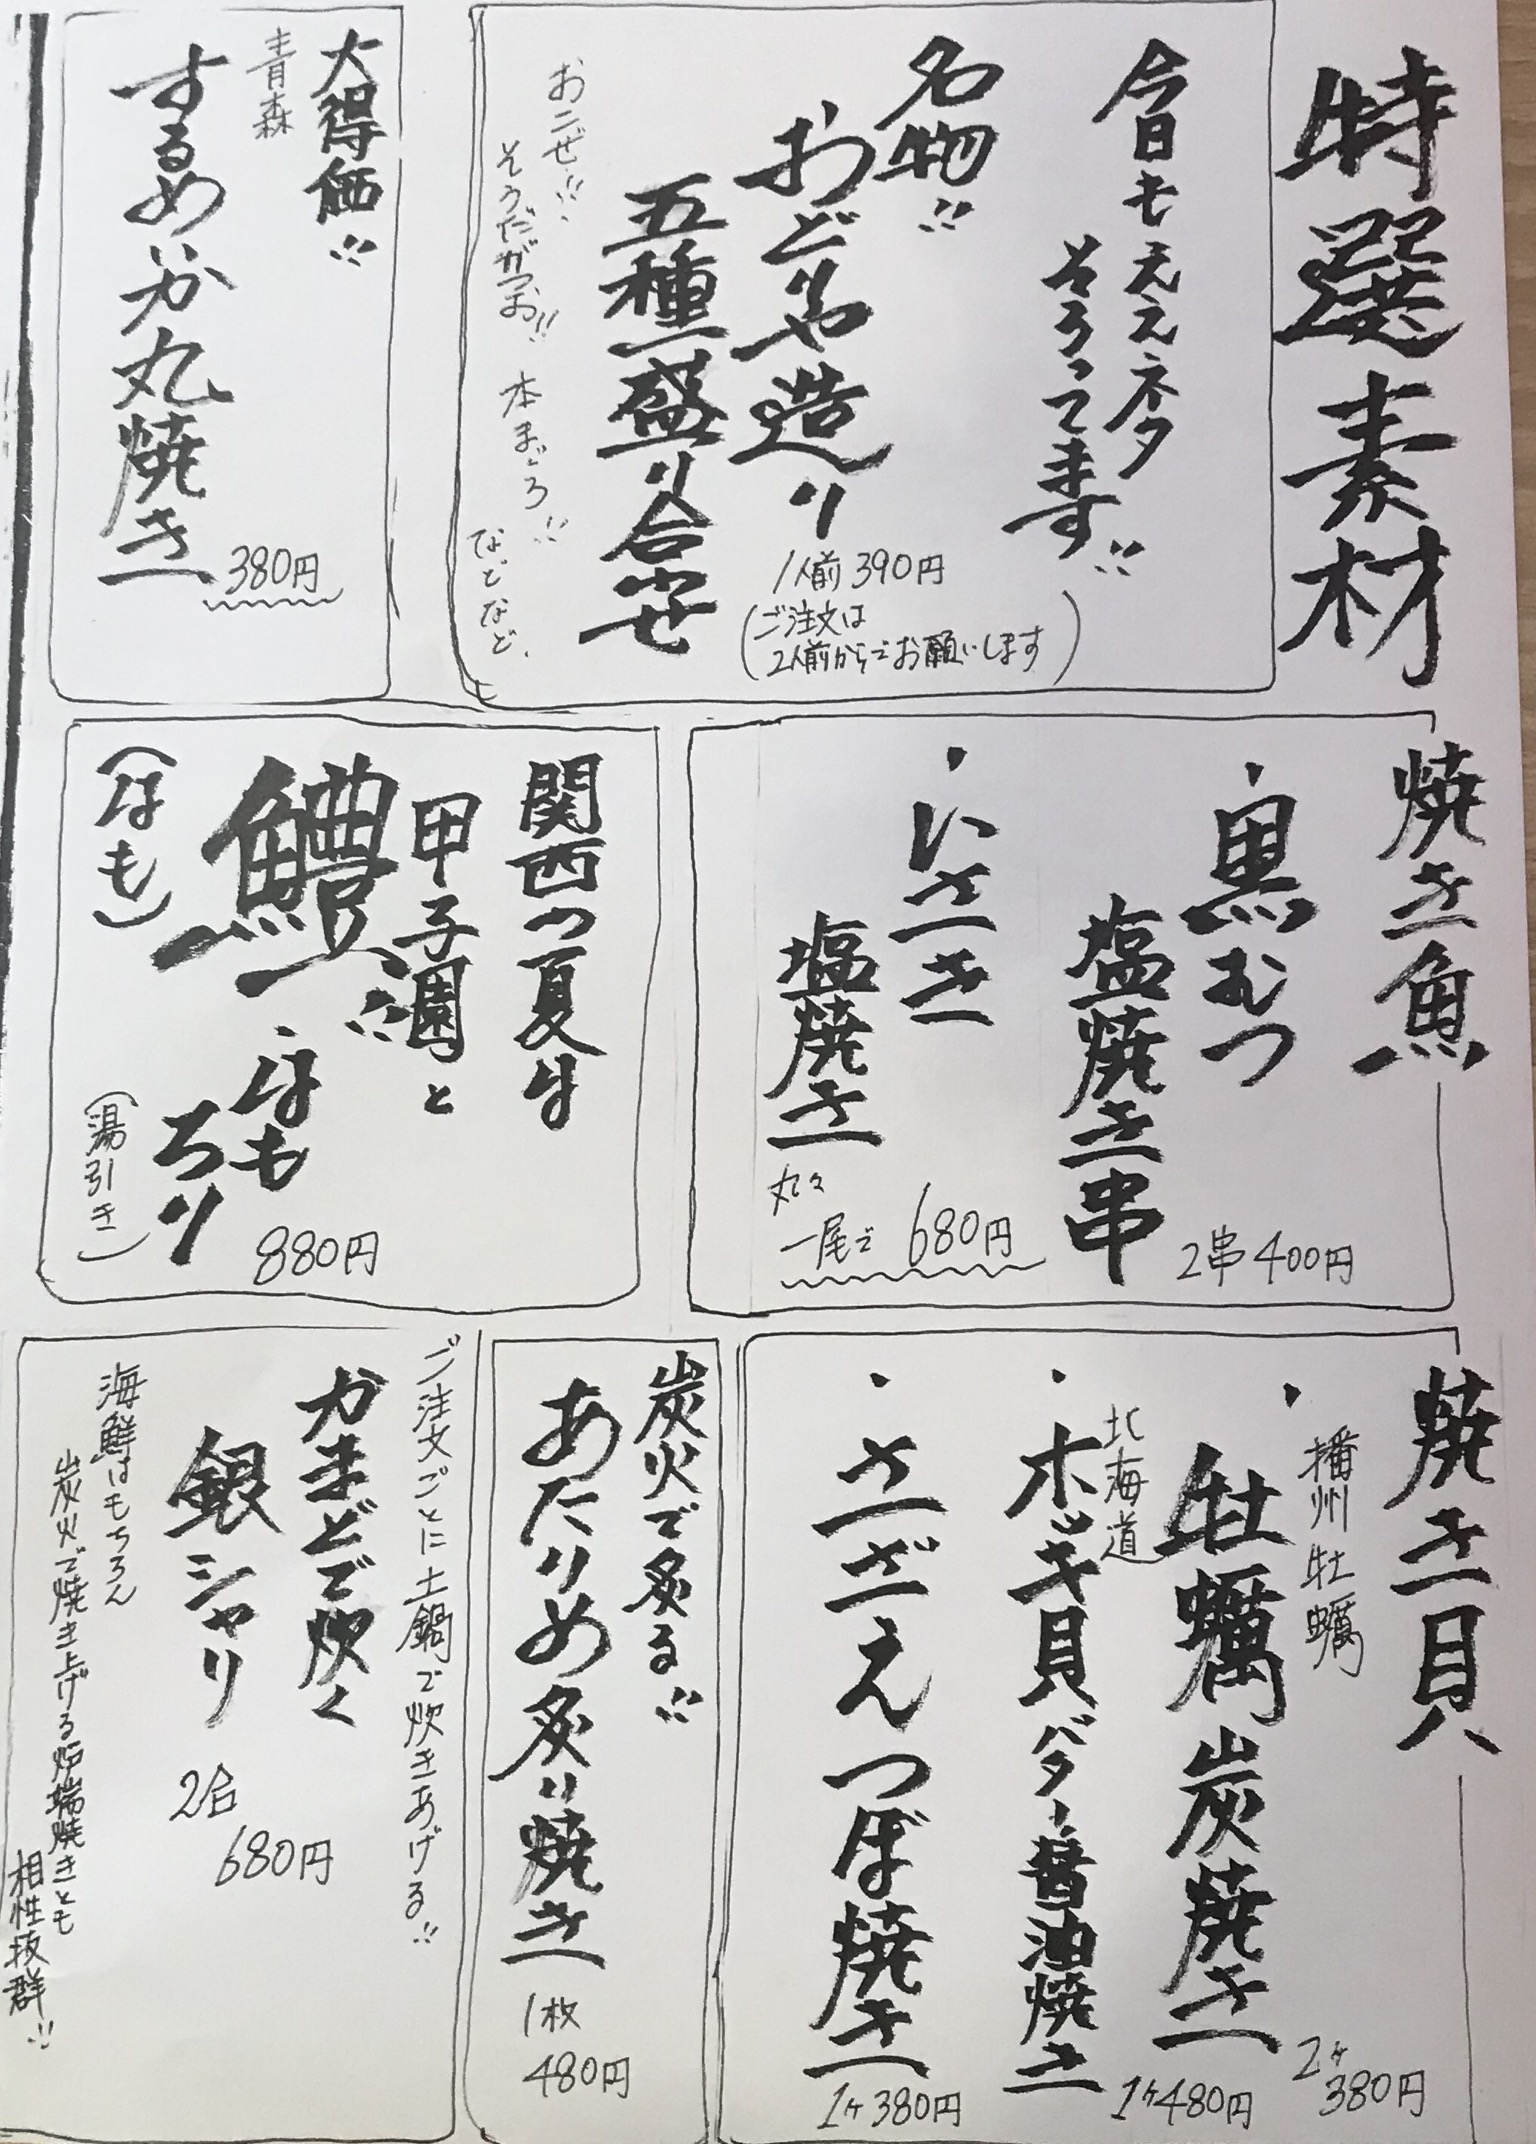 特選素材
今日もええネタ
そろってます!!
名物!!
おどりや造り
五種盛り合わせ
1人前390円
(ご注文は
2人前からでお願いします)
おこぜ!!
そうだがつお!!
本まぐろ!!
などなど、
大得価!!
青森
するめいか丸焼き
380円
焼き魚
・黒むつ
塩焼き串
2串400円
・いさき
塩焼き
丸々
一尾で
680円
関西の夏は
甲子園と
鱧!!
(はも)
・はも
ちり
(湯引き)
880円
焼き貝
播州牡蠣
・牡蠣炭焼き
2ヶ
380円
北海道
・ホッキ貝バター醤油焼き
1ヶ480円
・さざえつぼ焼き
1ヶ380円
炭火で炙る!!
あたりめ炙り焼き
1枚
480円
ご注文ごとに土鍋で炊きあげる!!
かまどで炊く
銀シャリ
2合
680円
海鮮はもちろん
炭火で焼き上げる炉端焼きとも
相性抜群!!